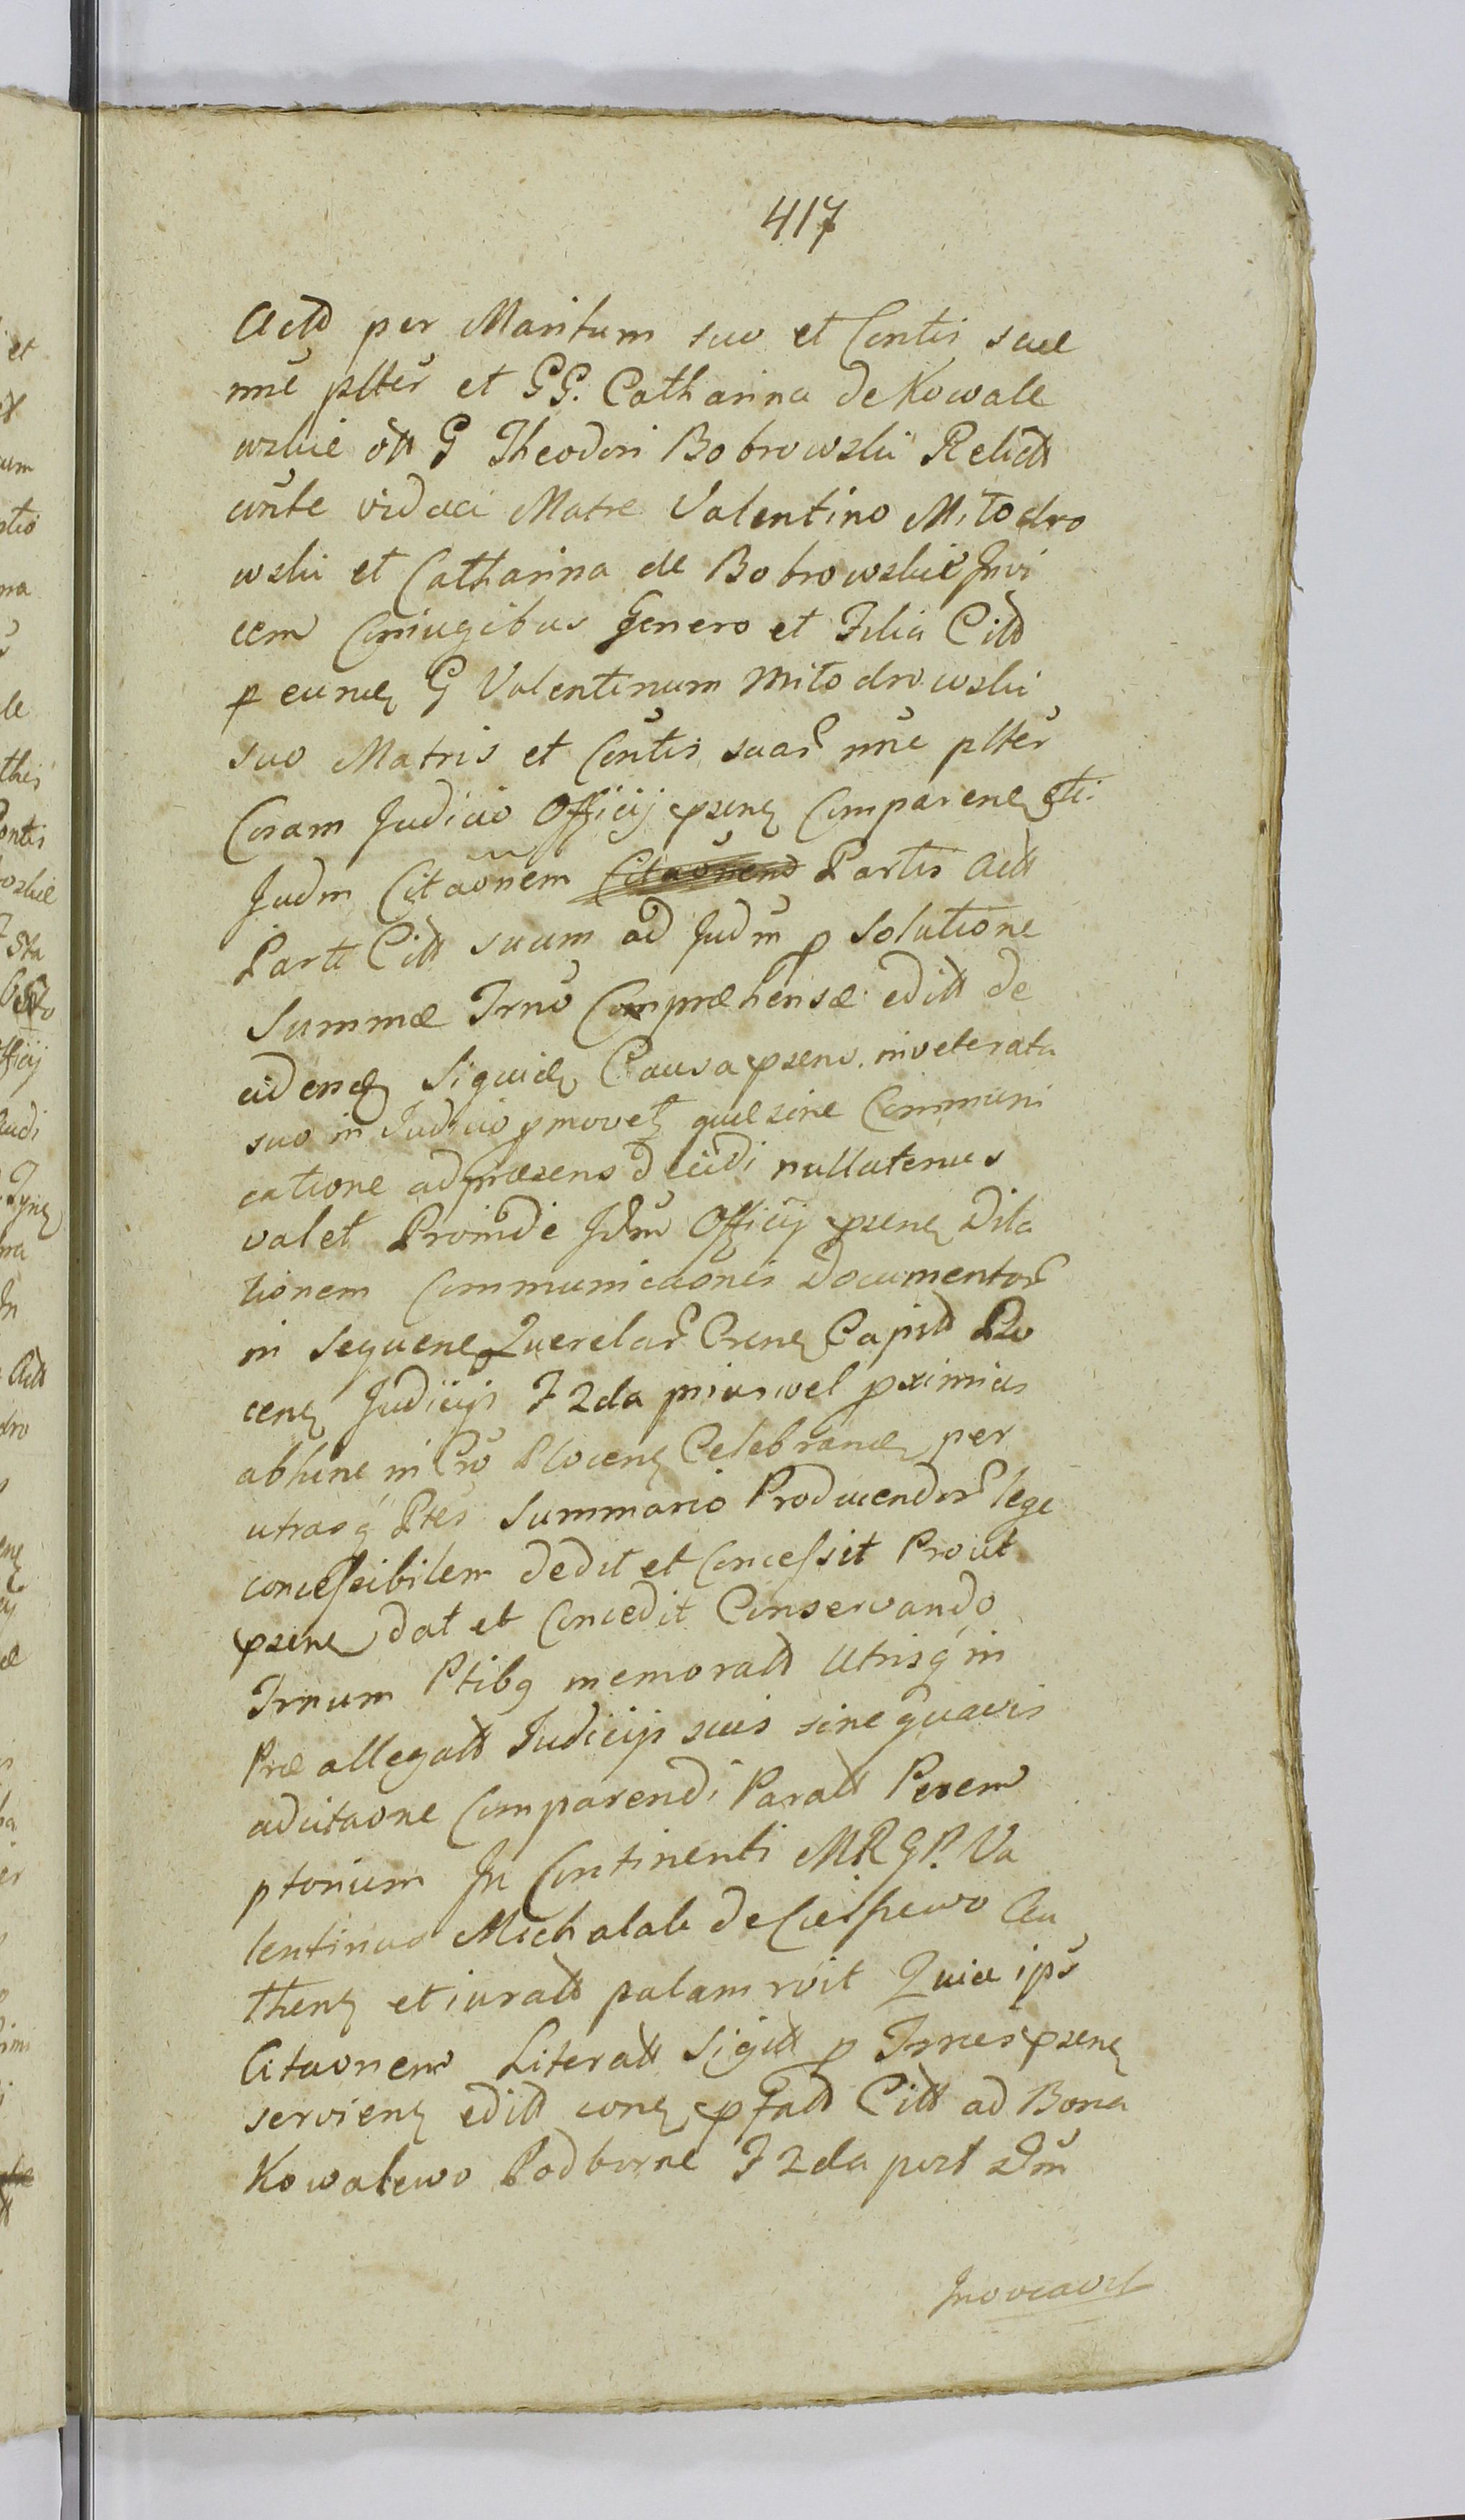 417
Actt per Maritum suo et Contis suæ
nne plter et GG. Catharina de Kowale
wskie ott G Theodori Bobrowskii Relictt
cunte vidua Matre Valentino Miłodro
wski et Catharina de Bobrowskie Invi
cem Coniugibus Genero et Filia Citt
p eund G Valentinum Miłodrowski
suo Matris et Contis suar nne plter
Coram Judicio Officij psenz Comparenz
Judm Citaonem Citaonem Partis Actt
Parti Citt suum ad Judm p Solutione
Summæ Trno Compræhensæ editt de
cidend Siquid Causa psens inveterata
suo in Judicio pmovet quæ sine Communi
catione ad præsens decidi nullatenus
valet Proinde Jdm Officij psenz Dila
tionem Communicaonis Documentor
in sequenz Querelar Crenz Capitt Plo
cenz Judicijs F 2da prius vel pximius
abhinc in Cro Plocenz Celebrand per
utrasq Ptes Summario Producendor lege
concessibilem dedit et Concessit Prout
psenz dat et Concedit Conservando
Trnum Ptibq memoratt Utrisq in
Præallegatt Judicijs suis sine quavis
adcitaone Comparendi Paratt Perem
ptorium In Continenti M.R.G.P. Va
lentinus Michalak de Cieszewo Au
thenz et iuratt palam rvit Quia ips
Citaonem Literatt Sigill p Trnes psenz
servienz editt conz pfatt Citt ad Bona
Kowalewo Podborne F 2da post Dm
Invocavit